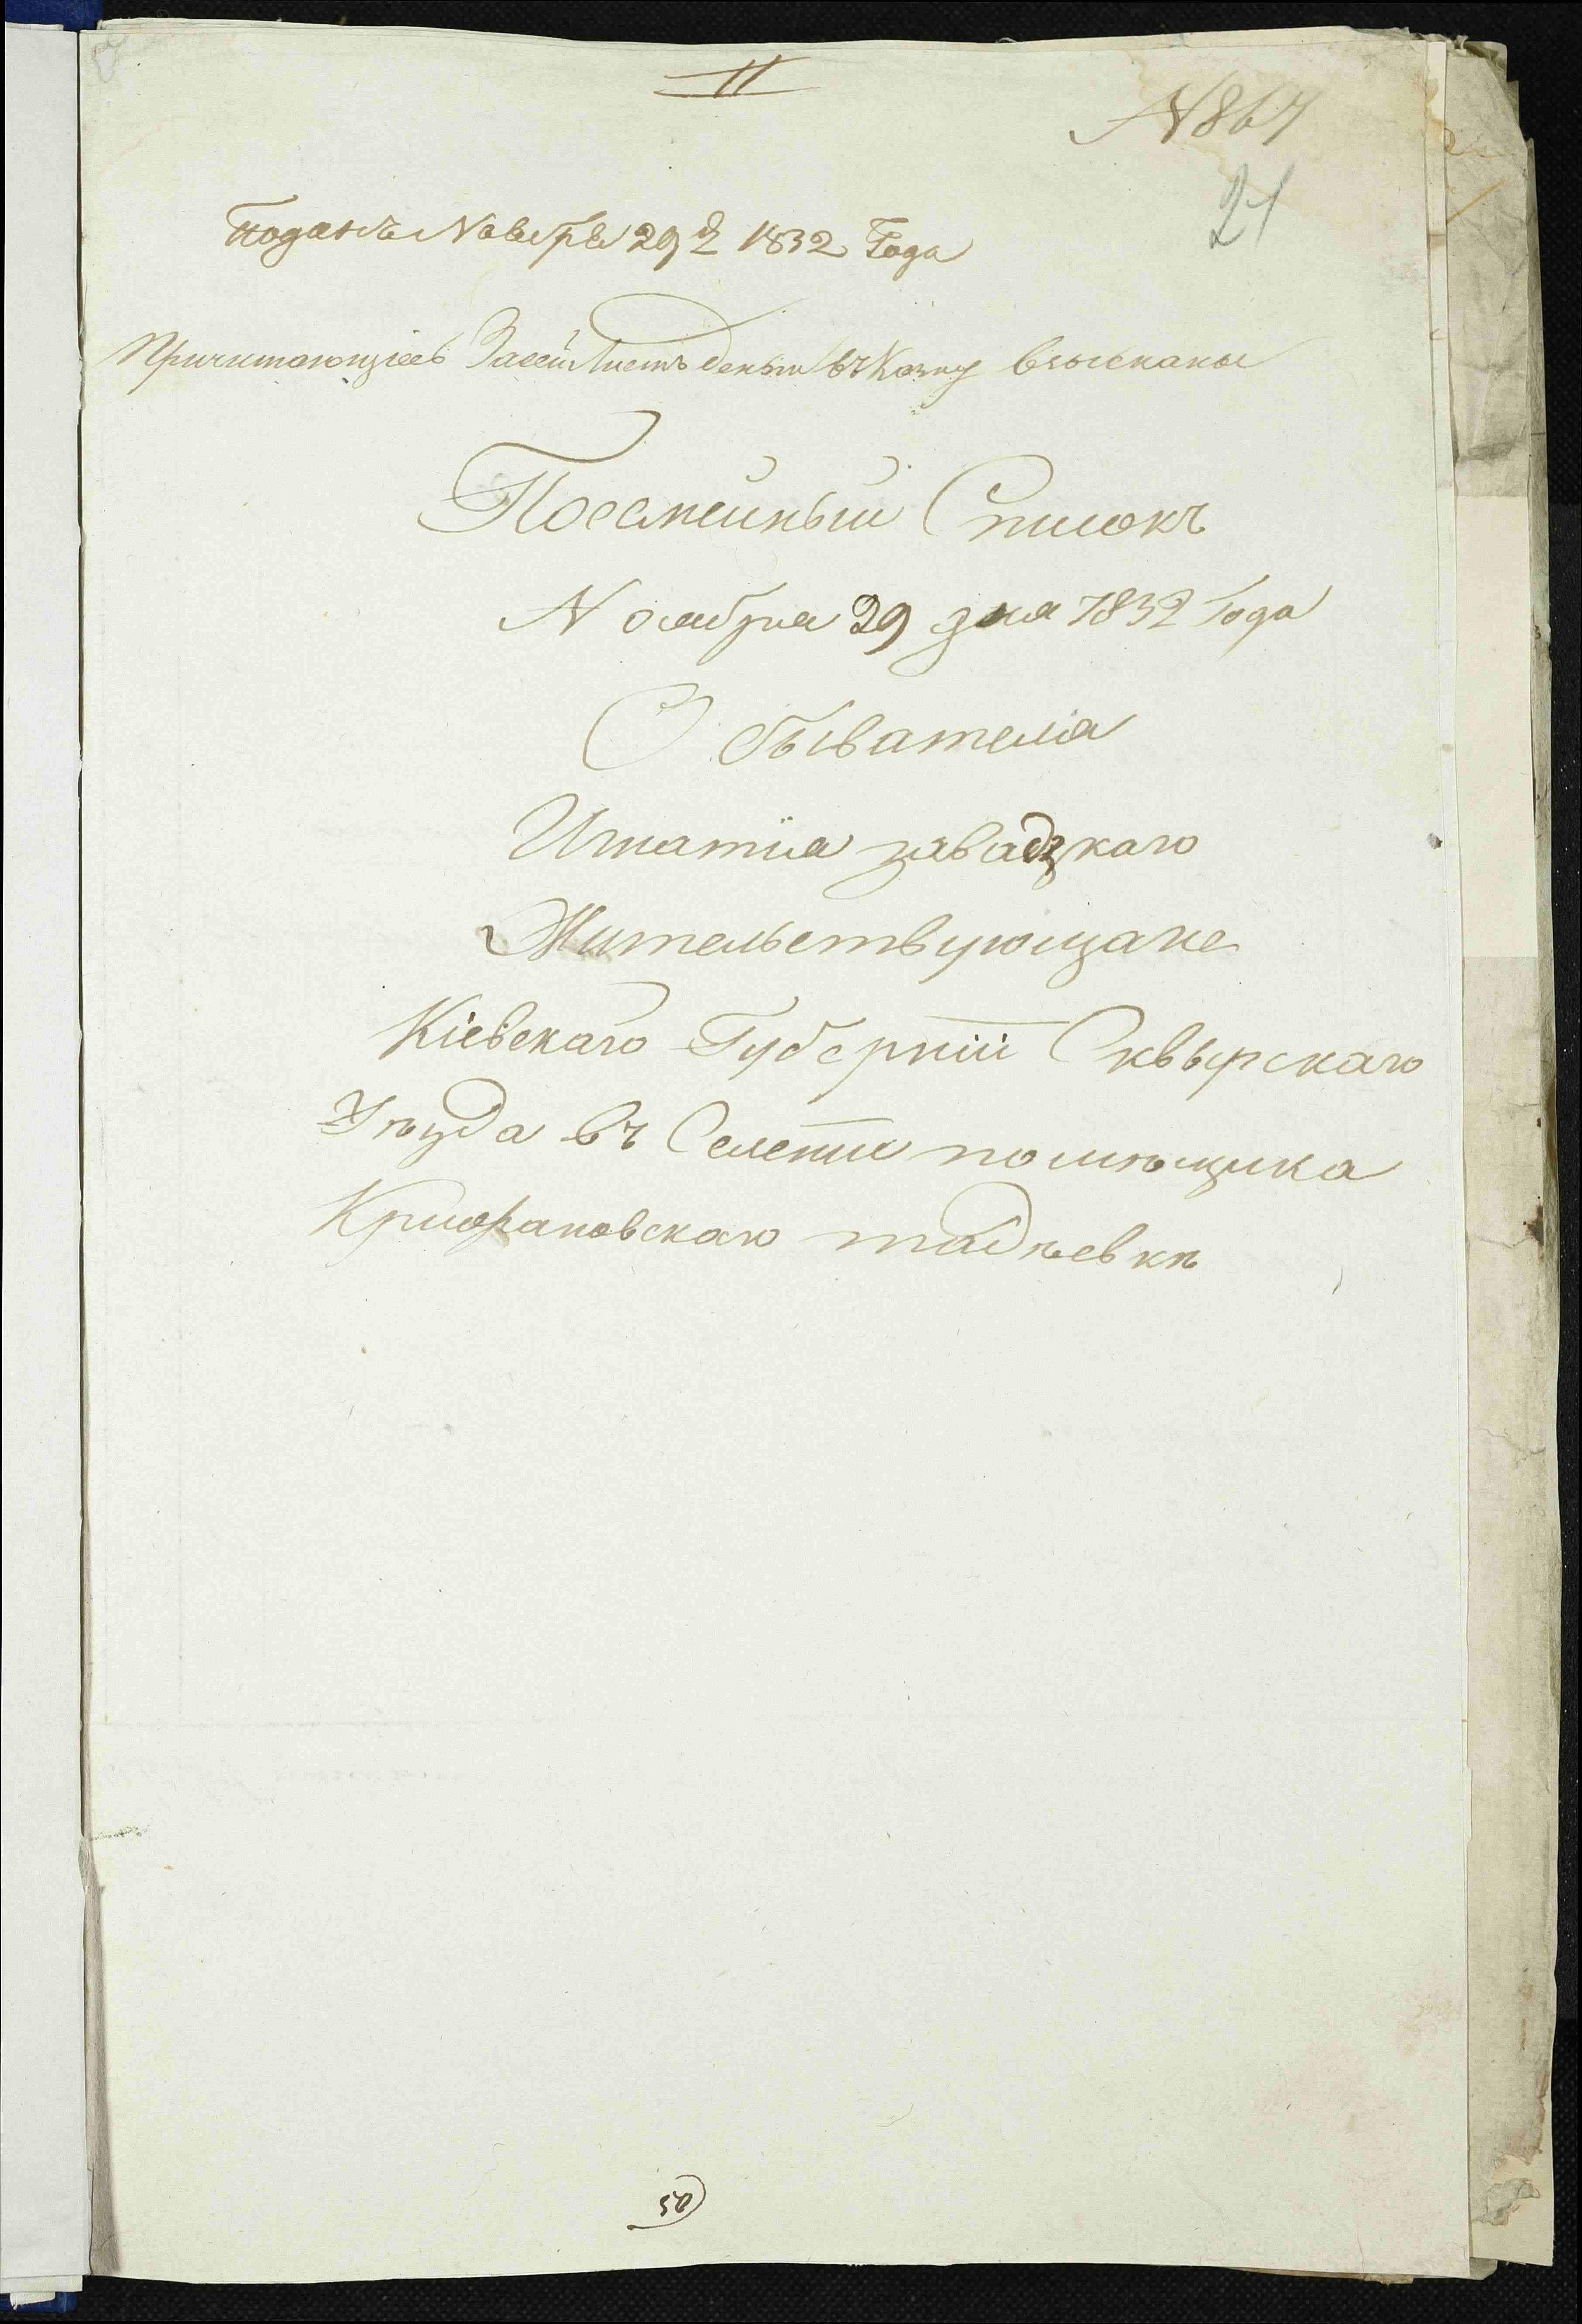 II
N 867
21
Поданъ Ноября 29 д 1832 Года
Причитающіесь За сей Листъ деньги въ Казну взысканы
Посемейный Списокъ
Ноября 29 дня 1832 Года
Обывателя
Игнатія завадзкаго
Жительствующаго
Кіевскаго Губерніи Сквырскаго
Уѣзда въ Селеніи помѣщика
тадѣевкѣ
50